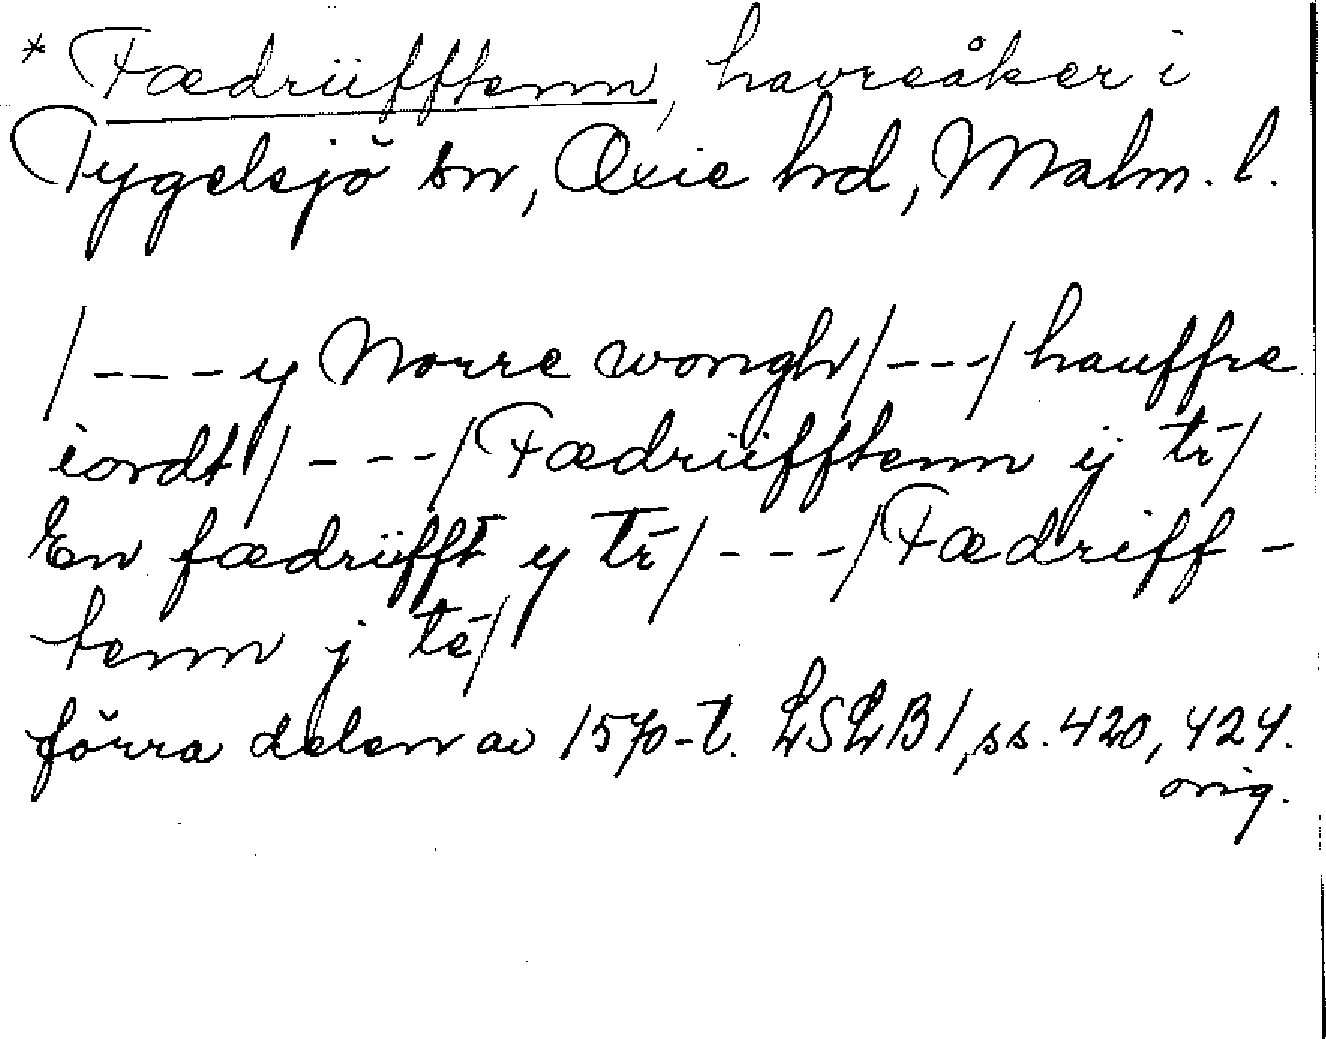 * Fædrüfftenn, havreåker i
Tygelsjö sn, Oxie hd, Malm. l.
/---y Norre wongh/---/hauffre
iordt/---/Fædrüfftenn ij tr̄/
En fædrüfft y tr̄/---/Fædriff-
tenn j te̅/
förra delen av 1570-t. LSLB1, ss. 420, 424.
orig.